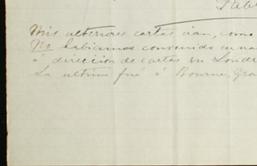 Mis ulteriores cartas irán, como
No habiamos convenido en na
á direccion de cartas en Londr
La ultima fué á Bourne, Gra